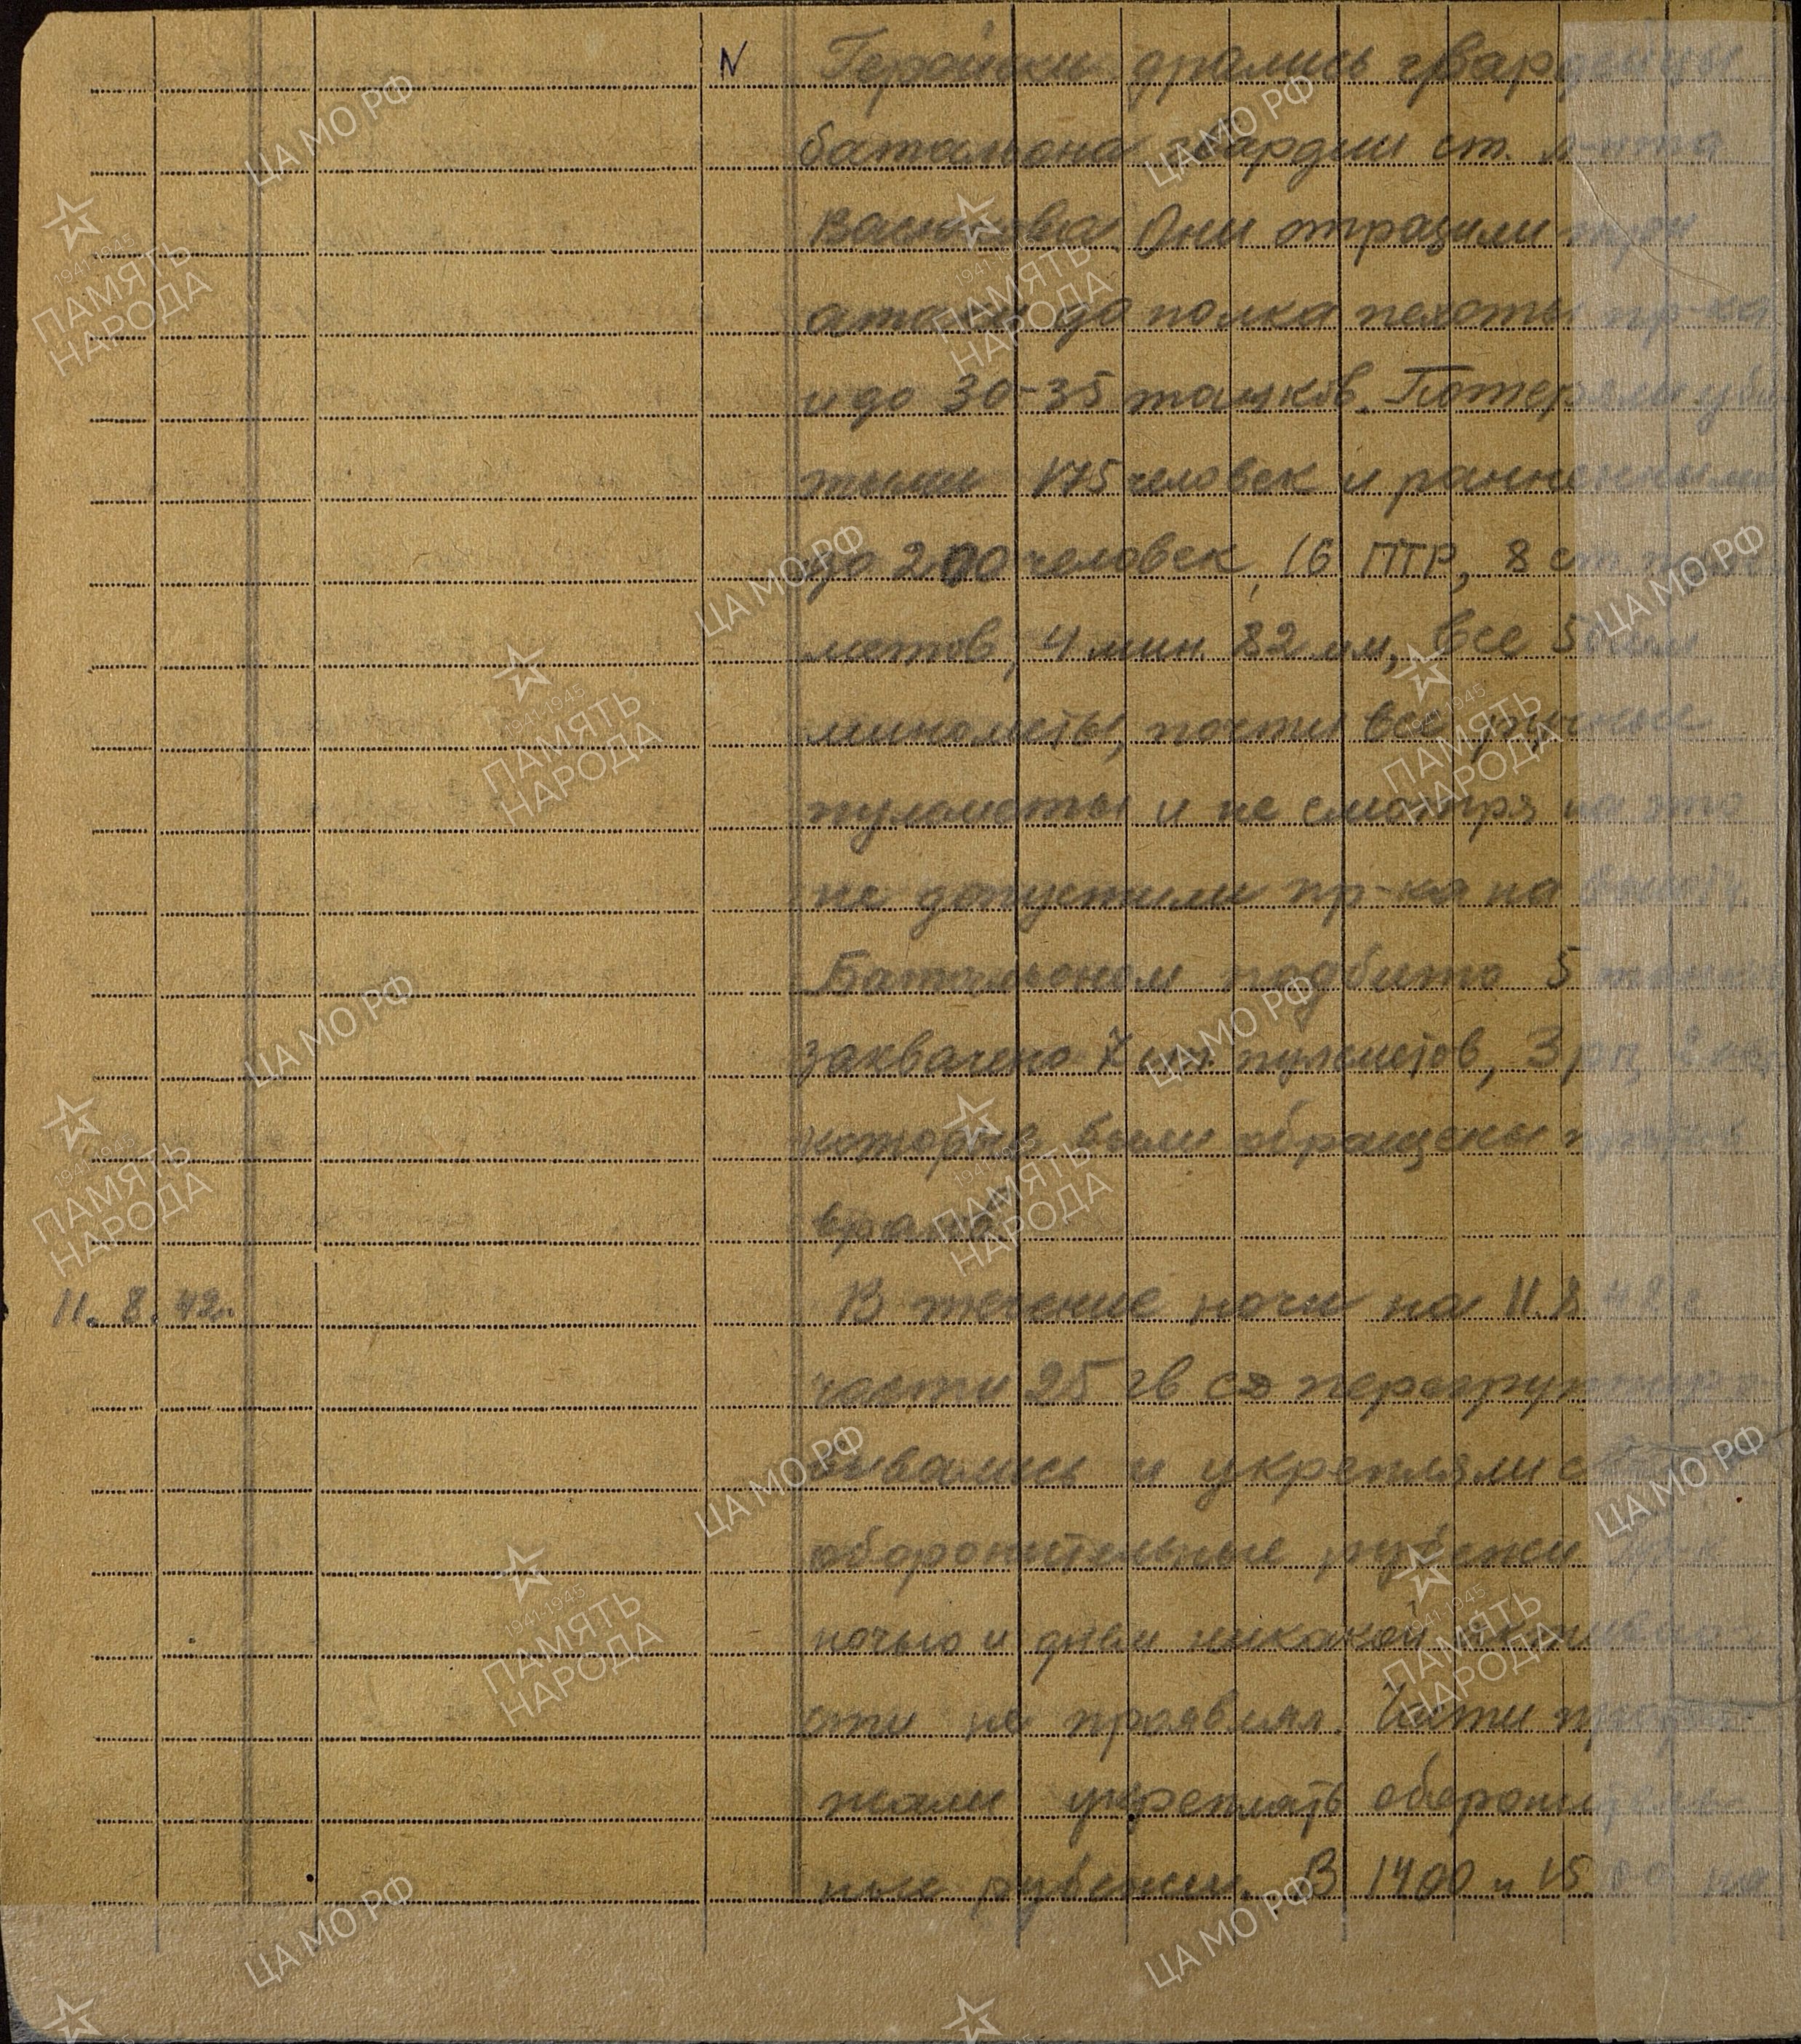 N Геройски дрались гвардейцы
батальона гвардии ст. л-нта
Они отразили
атаки до полка пехоты пр-ка
и до 30-35 танков. Потеряли уби
тыми 175 человек и раненными
до 200 человек, 16 ПТР, 8 ст. пуле
метов, 4 мин. 82 мм, все 50 мм
минометы, почти все ручные
пулеметы и не смотря на это
не допустили пр-ка на высоту.
Батальоном подбито 5 танков
захвачено 7 ст. пулеметов, 3 рп,
которые были обращены против
врага.
11. 8. 42г. В течение ночи на 11.8.42г
части 25 гв сд перегруппиро
вывались и укрепляли
оборонительные рубежи пр-к
ночью и днем никакой активно
сти не проявлял. Части продол
жали укреплять оборонитель
ные рубежи. В 1400 и 1500
ЦА МО РФ
ПАМЯТЬ НАРОДА
1941-1945